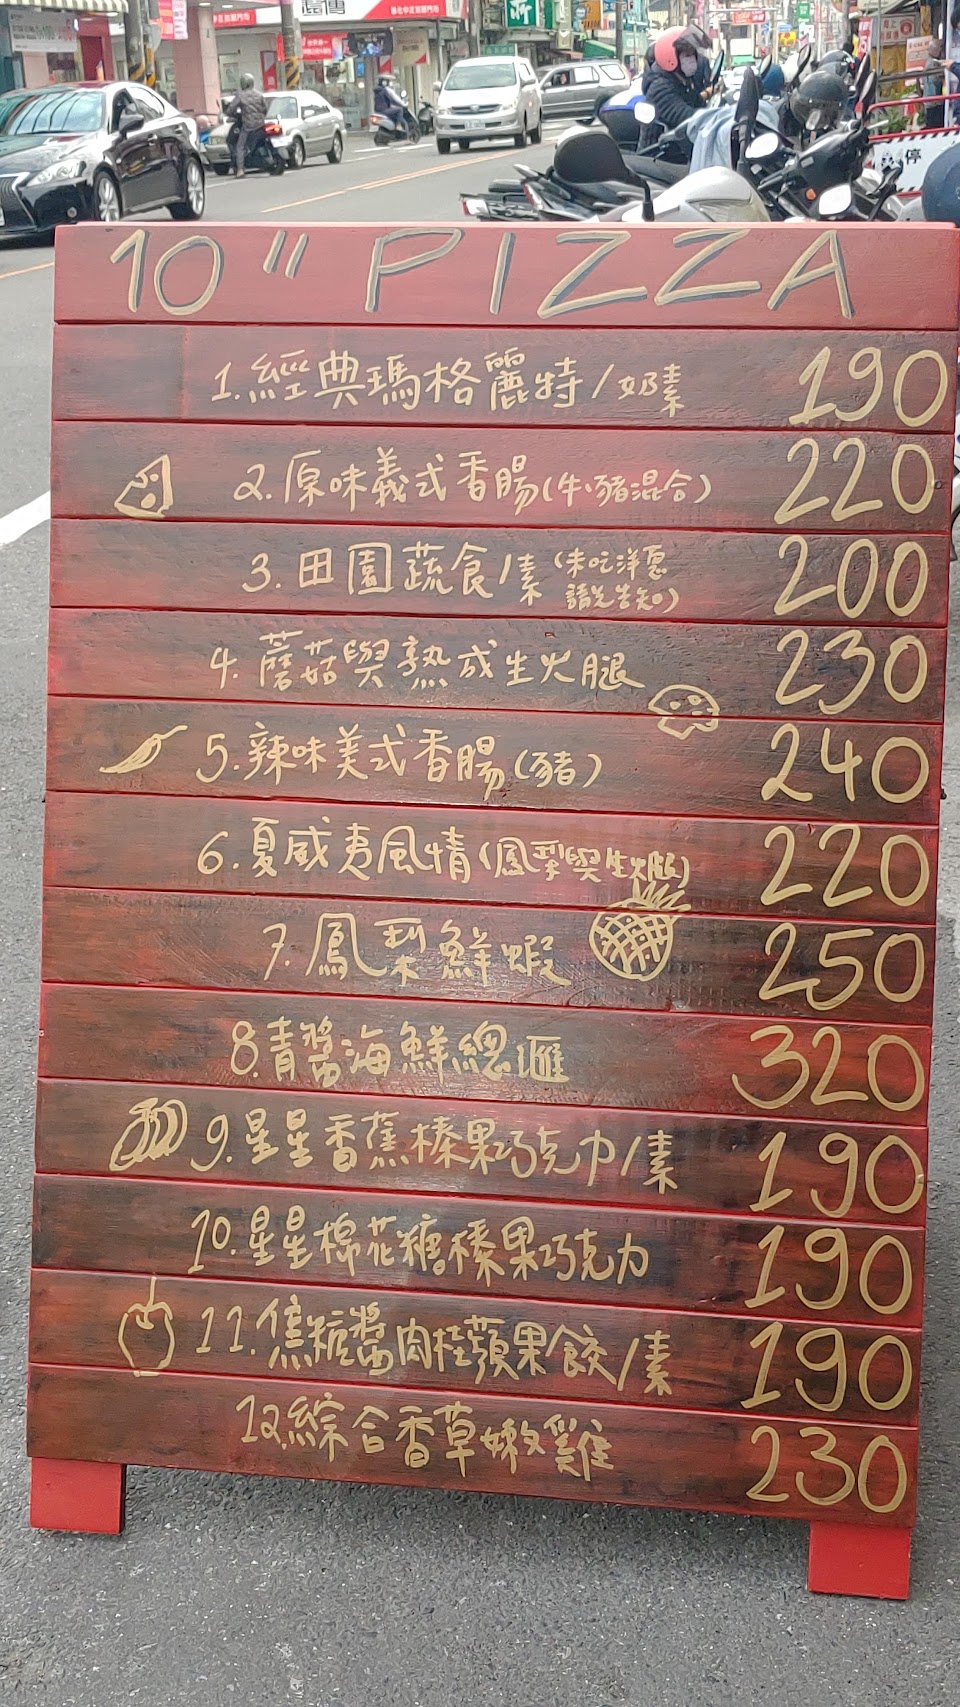 10" PIZZA
1.經典瑪格麗特/奶素 190
2.原味義式香腸(牛.豬混合) 220
3.田園蔬食/素(未吃洋蔥 請先告知) 200
4.蘑菇與熟成生火腿 230
5.辣味美式香腸(豬) 240
6.夏威夷風情(鳳梨與生火腿) 220
7.鳳梨鮮蝦 250
8.青醬海鮮總匯 320
9.星星香蕉榛果巧克力/素 190
10.星星棉花糖榛果巧克力 190
11.焦糖醬肉桂蘋果餃/素 190
12.綜合香草嫩雞 230
停